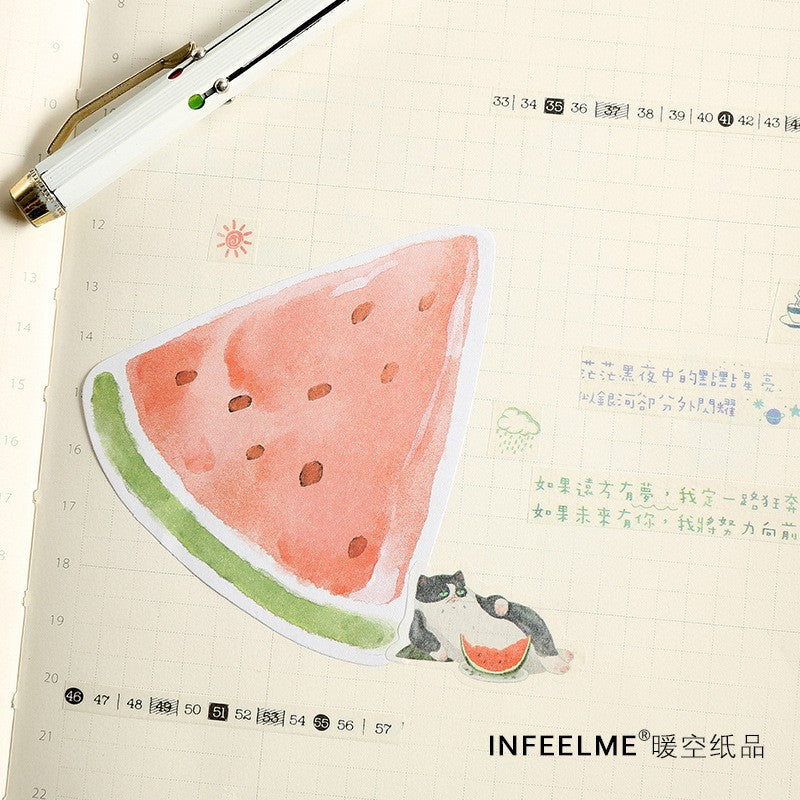 8
9
10
33 | 34 35 36 37 38 | 39 | 40 41 42 | 43
12
13
13
14
14
15
茫茫黑夜中的點點星亮
似銀河卻分外閃耀
16
17
如果遠方有夢，我定一路狂奔
如果未來有你，我將努力向前
18
19
20
46 47 | 48 49 50 51 52 53 54 55 56 | 57
21
22
INFEELME®暖空纸品